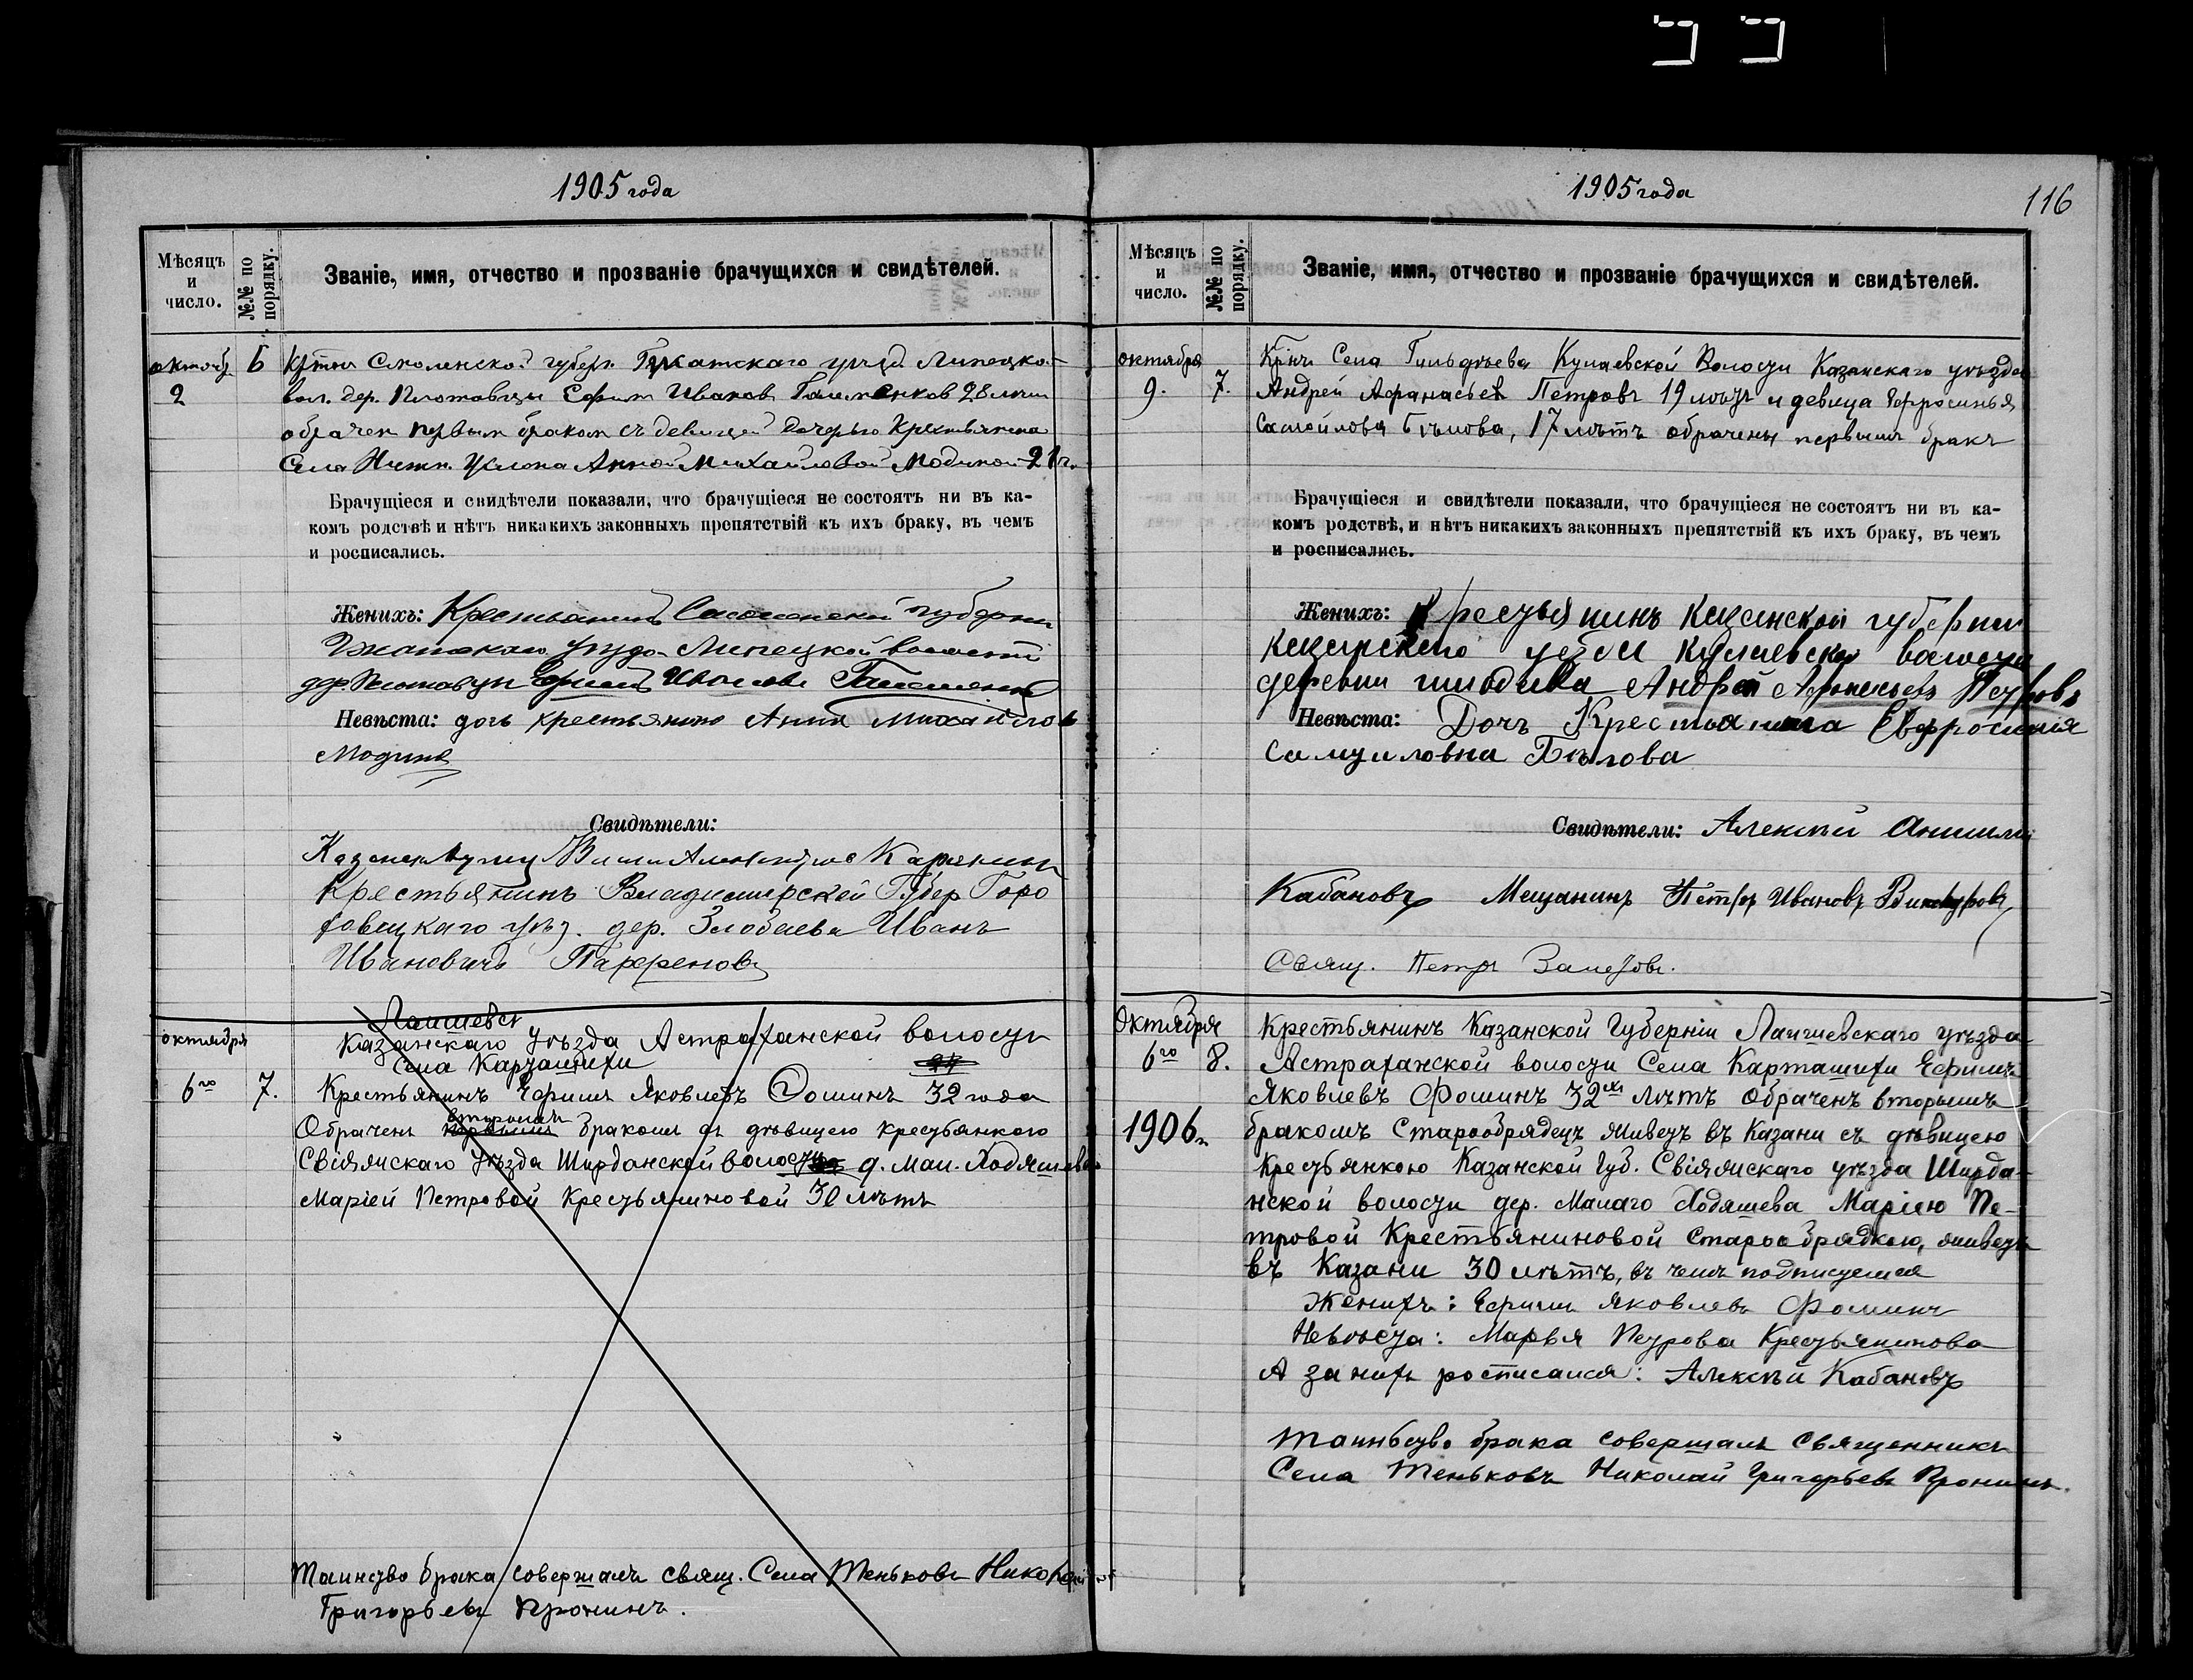 1905 года
Мѣсяцъ и число.
№№ по порядку.
Званіе, имя, отчество и прозваніе брачущихся и свидѣтелей.
октябр. 2
6
Кр̃тнъ Смоленской губерн. Гжатскаго уѣзд. Липецко.
вол. дер. Плотавцы Ефим Иванов 28 лѣт
обрачен первым браком съ девицей дочерью Крестьянина
Села Нижн. Услона Анной Михайловой Модиной 21 г.
Брачущіеся и свидѣтели показали, что брачущіеся не состоятъ ни въ ка-
комъ родствѣ и нѣтъ никакихъ законныхъ препятствій къ ихъ браку, въ чемъ
и росписались.
Женихъ: Крестьянинъ Смоленской губерни
Гжатскаго уездо Липецкой волости
дер. Плотавцы Ефимъ Иванова
Невѣста: дочь крестьянина Анна Михайлова
Модина
Свидѣтели:
Казанск. Купец Карякин
Крестьянинъ Владимирской Губер Горо
ховецкаго уѣз. дер. Злобаева Иванъ
Ивановичъ Парфенов
Лаишевск
октября
Казанскаго уѣзда Астраханской волости
Села Карташихи
6го
7.
Крестьянинъ Ефимъ Яковлевъ Фоминъ 32 года
вторымъ
Обраченъ первымъ бракомъ съ дѣвицею крестьянкою
Свіяжскаго уѣзда Ширданской волости д. Мал. Ходяшева
Маріей Петровой Крестьяниновой 30 лѣтъ
Таинство брака совершалъ свящ. Села Теньковъ Николай
Григорьевъ Пронинъ.
1905 года
116
Мѣсяцъ и число.
№№ по порядку.
Званіе, имя, отчество и прозваніе брачущихся и свидѣтелей.
октября 9.
7.
Крнъ Села Гильдѣева Кулаевской Волости Казанскаго уѣзда
Андрей Афанасьев Петровъ 19 лѣтъ и девица Ефросинья
Самойлова Бѣлова, 17 лѣтъ обрачены первымъ бракъ
Брачущіеся и свидѣтели показали, что брачущіеся не состоятъ ни въ ка-
комъ родствѣ, и нѣтъ никакихъ законныхъ препятствій къ ихъ браку, въ чемъ
и росписались.
Женихъ: Крестьянинъ казанской губернии
казанскаго уезда кулаевской валости
деревни гильдиева Андрей Афонасьевъ Петровъ
Невѣста: Дочь Крестьянина Евфросинія
Самуиловна Бѣлова
Свидѣтели: Алексѣй
Кабановъ Мещанинъ Петръ Ивановъ Винокуровъ
Свящ. Петръ Залетовъ.
Октября
Крестьянинъ Казанской Губерніи Лаишевскаго уѣзда
6го
8.
Астраханской волости Села Карташихи Ефимъ
Яковлевъ Фоминъ 32хъ лѣтъ Обраченъ вторымъ
1906 г.
бракомъ Старообрядецъ живетъ въ Казани съ дѣвицею
Крестьянкою Казанской Губ. Свіяжскаго уѣзда Ширда-
нской волости дер. Малаго Ходяшева Маріею Пе-
тровой Крестьяниновой Старообрядкою, живетъ
въ Казани 30 лѣтъ, въ чемъ подписуемся
Женихъ: Ефимъ Яковлевъ Фоминъ
Невѣста: Марья Петрова Крестьянинова
А за нихъ росписался: Алексѣй Кабановъ
Таинство брака совершалъ Священникъ
Села Теньковъ Николай Григорьевъ Пронинъ.